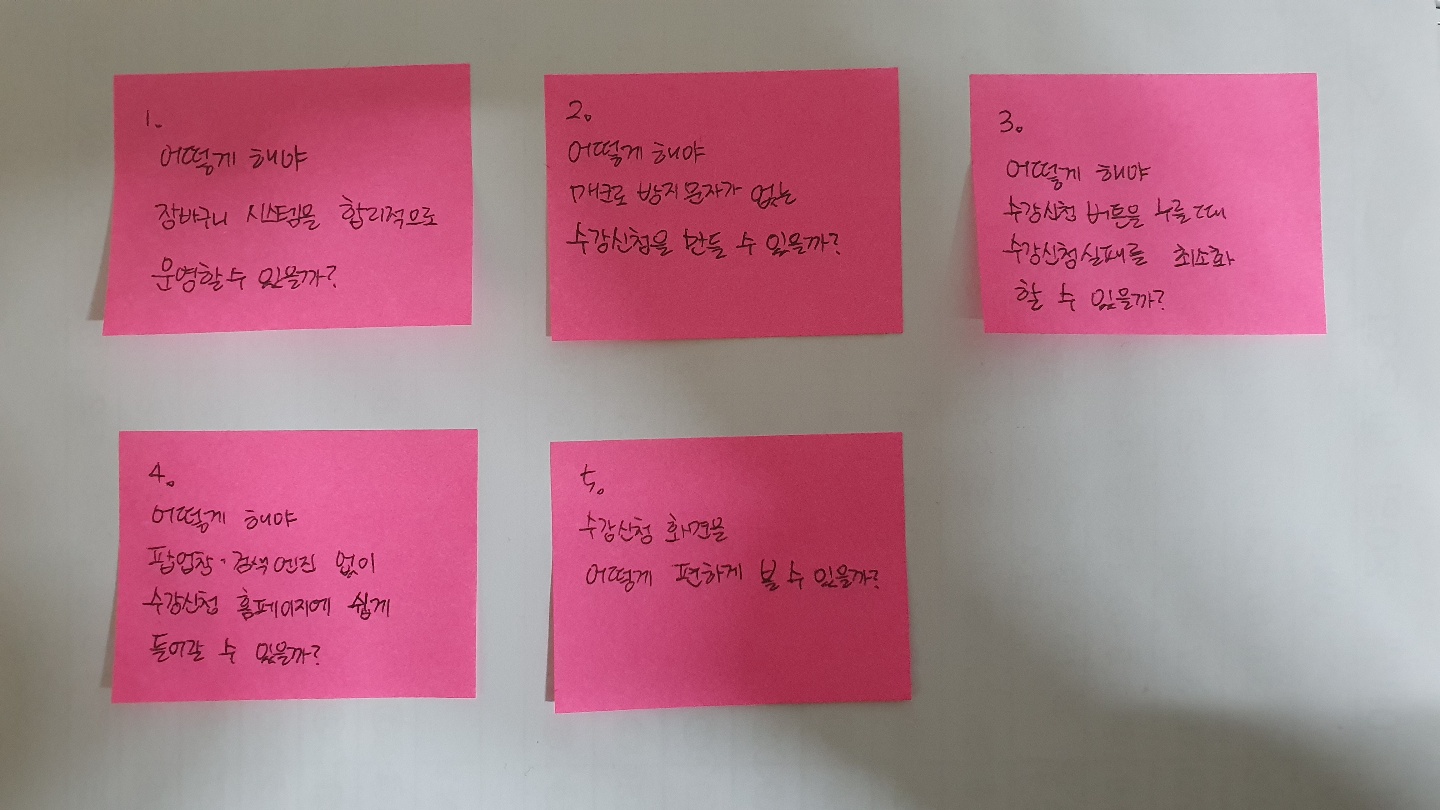 1.
어떻게 해야
장바구니 시스템을 합리적으로
운영할 수 있을까?
2.
어떻게 해야
매크로 방지 문자가 없는
수강신청을 만들 수 있을까?
3.
어떻게 해야
수강신청 버튼을 누를 때
수강신청 실패를 최소화
할 수 있을까?
4.
어떻게 해야
팝업창·검색엔진 없이
수강신청 홈페이지에 쉽게
들어갈 수 있을까?
5.
수강신청 화면을
어떻게 편하게 볼 수 있을까?